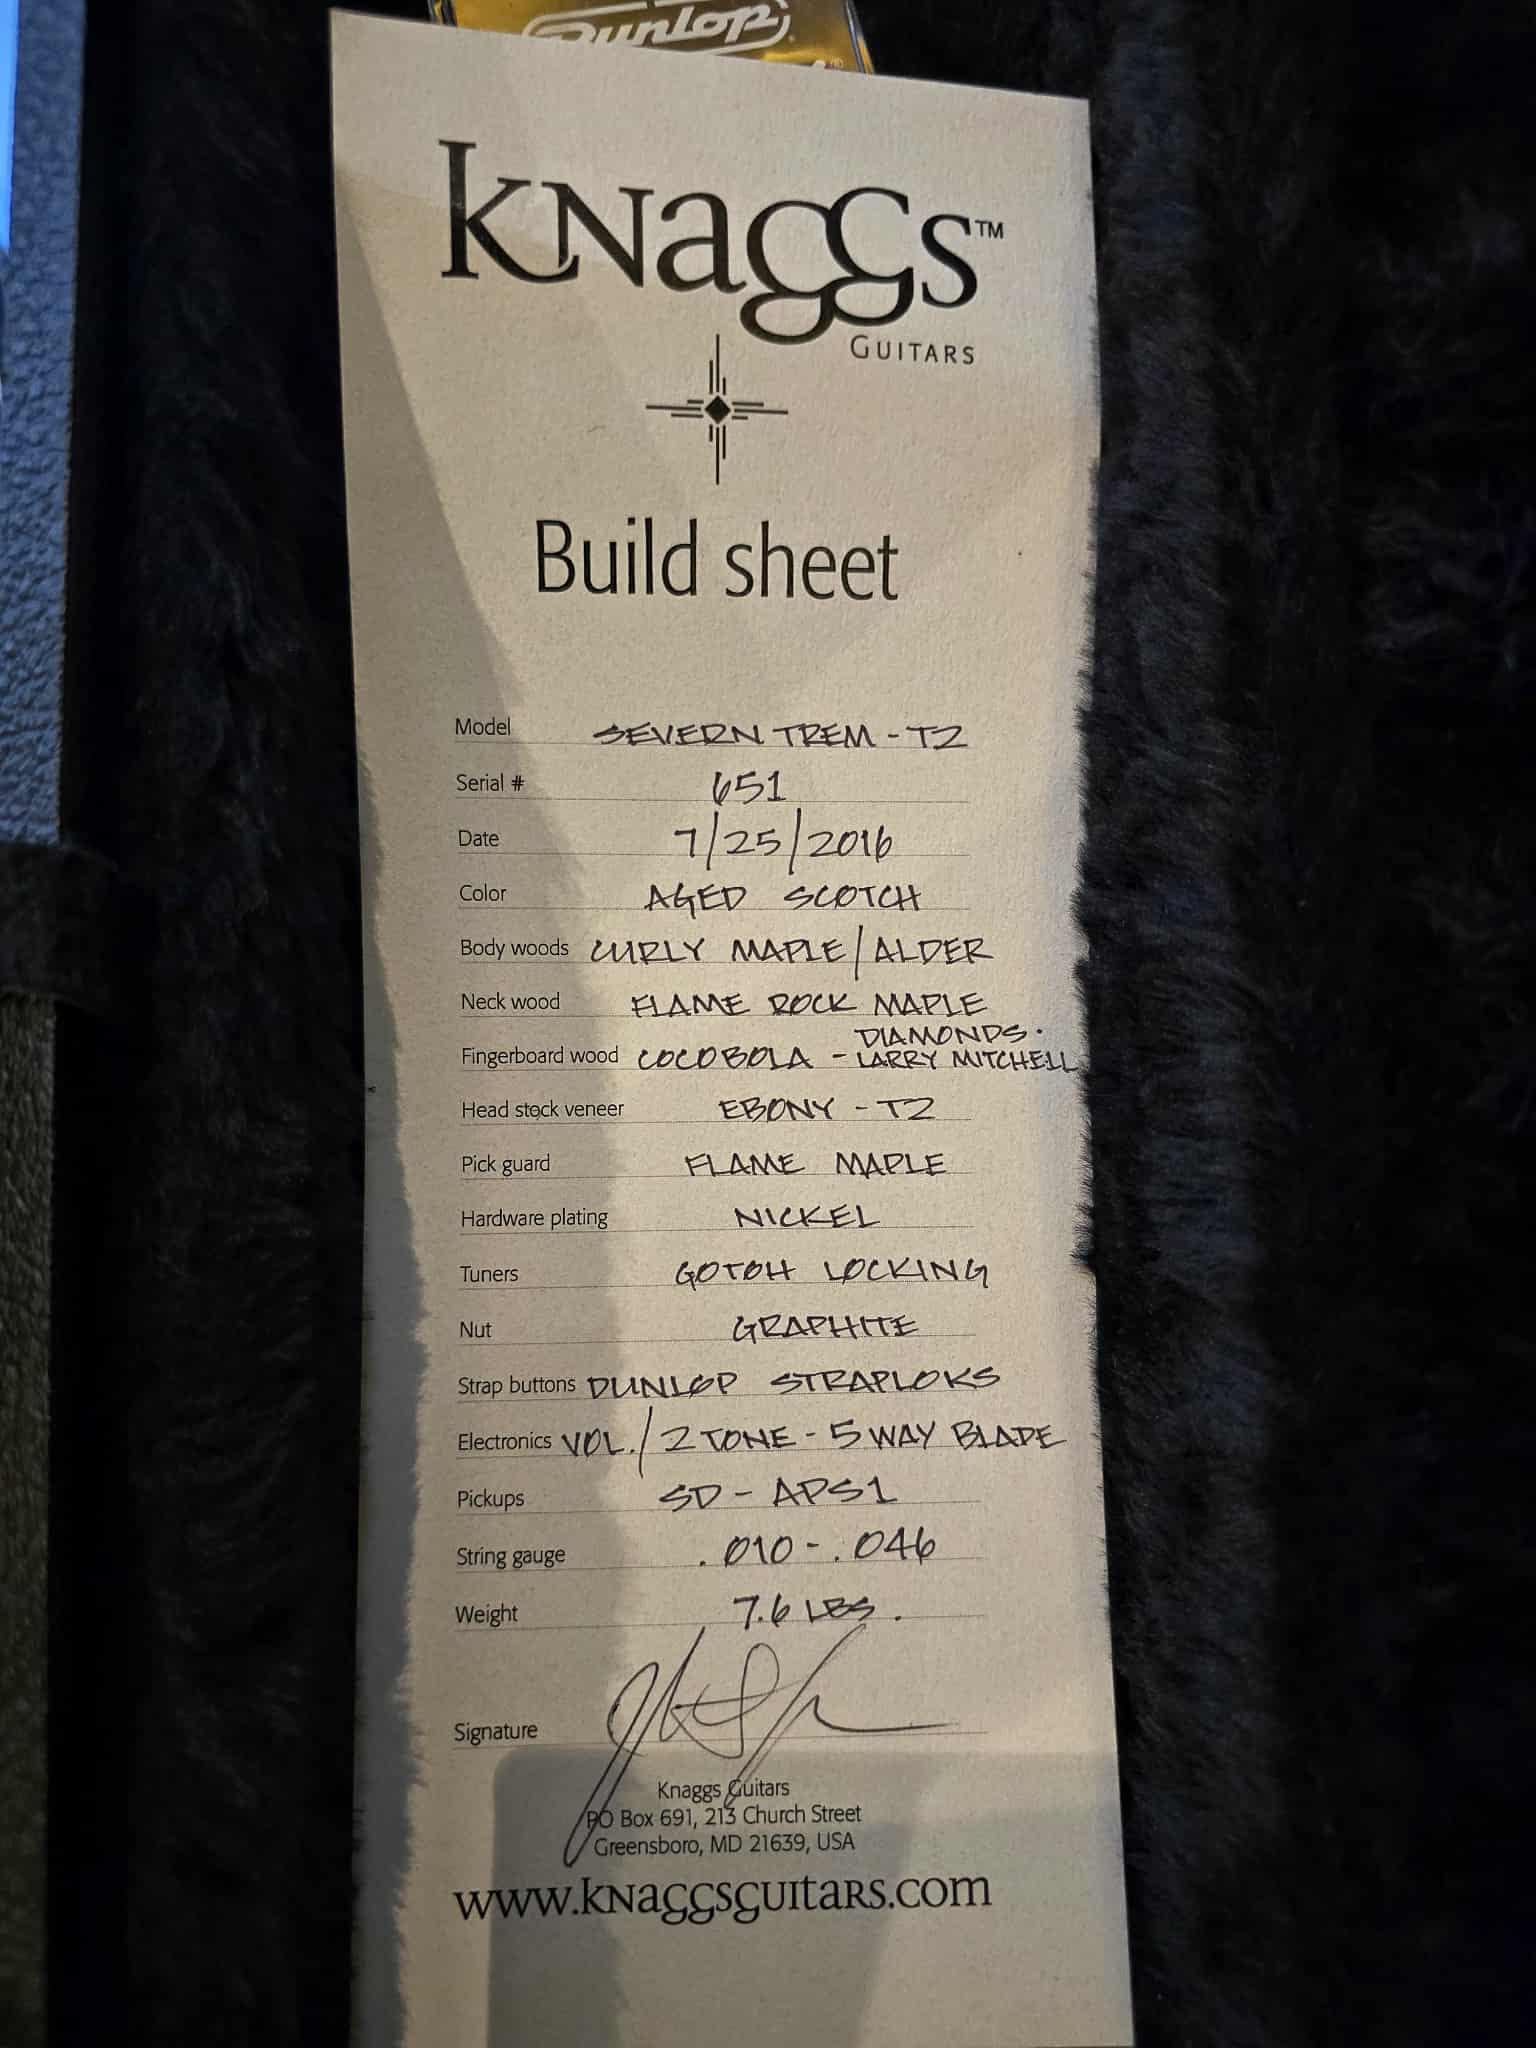 Dunlop®
KNaGGS™
GUITARS
Build sheet
Model SEVERN TREM - T2
Serial # 651
Date 7/25/2016
Color AGED SCOTCH
Body woods CURLY MAPLE/ALDER
Neck wood FLAME ROCK MAPLE
DIAMONDS.
Fingerboard wood COCOBOLA - LARRY MITCHELL
Head stock veneer EBONY - T2
Pick guard FLAME MAPLE
Hardware plating NICKEL
Tuners GOTOH LOCKING
Nut GRAPHITE
Strap buttons DUNLOP STRAPLOKS
Electronics VOL./2 TONE - 5 WAY BLADE
Pickups SD - APS1
String gauge .010 - .046
Weight 7.6 LBS.
Signature
Knaggs Guitars
PO Box 691, 213 Church Street
Greensboro, MD 21639, USA
www.KNaGGSGUITaRS.com